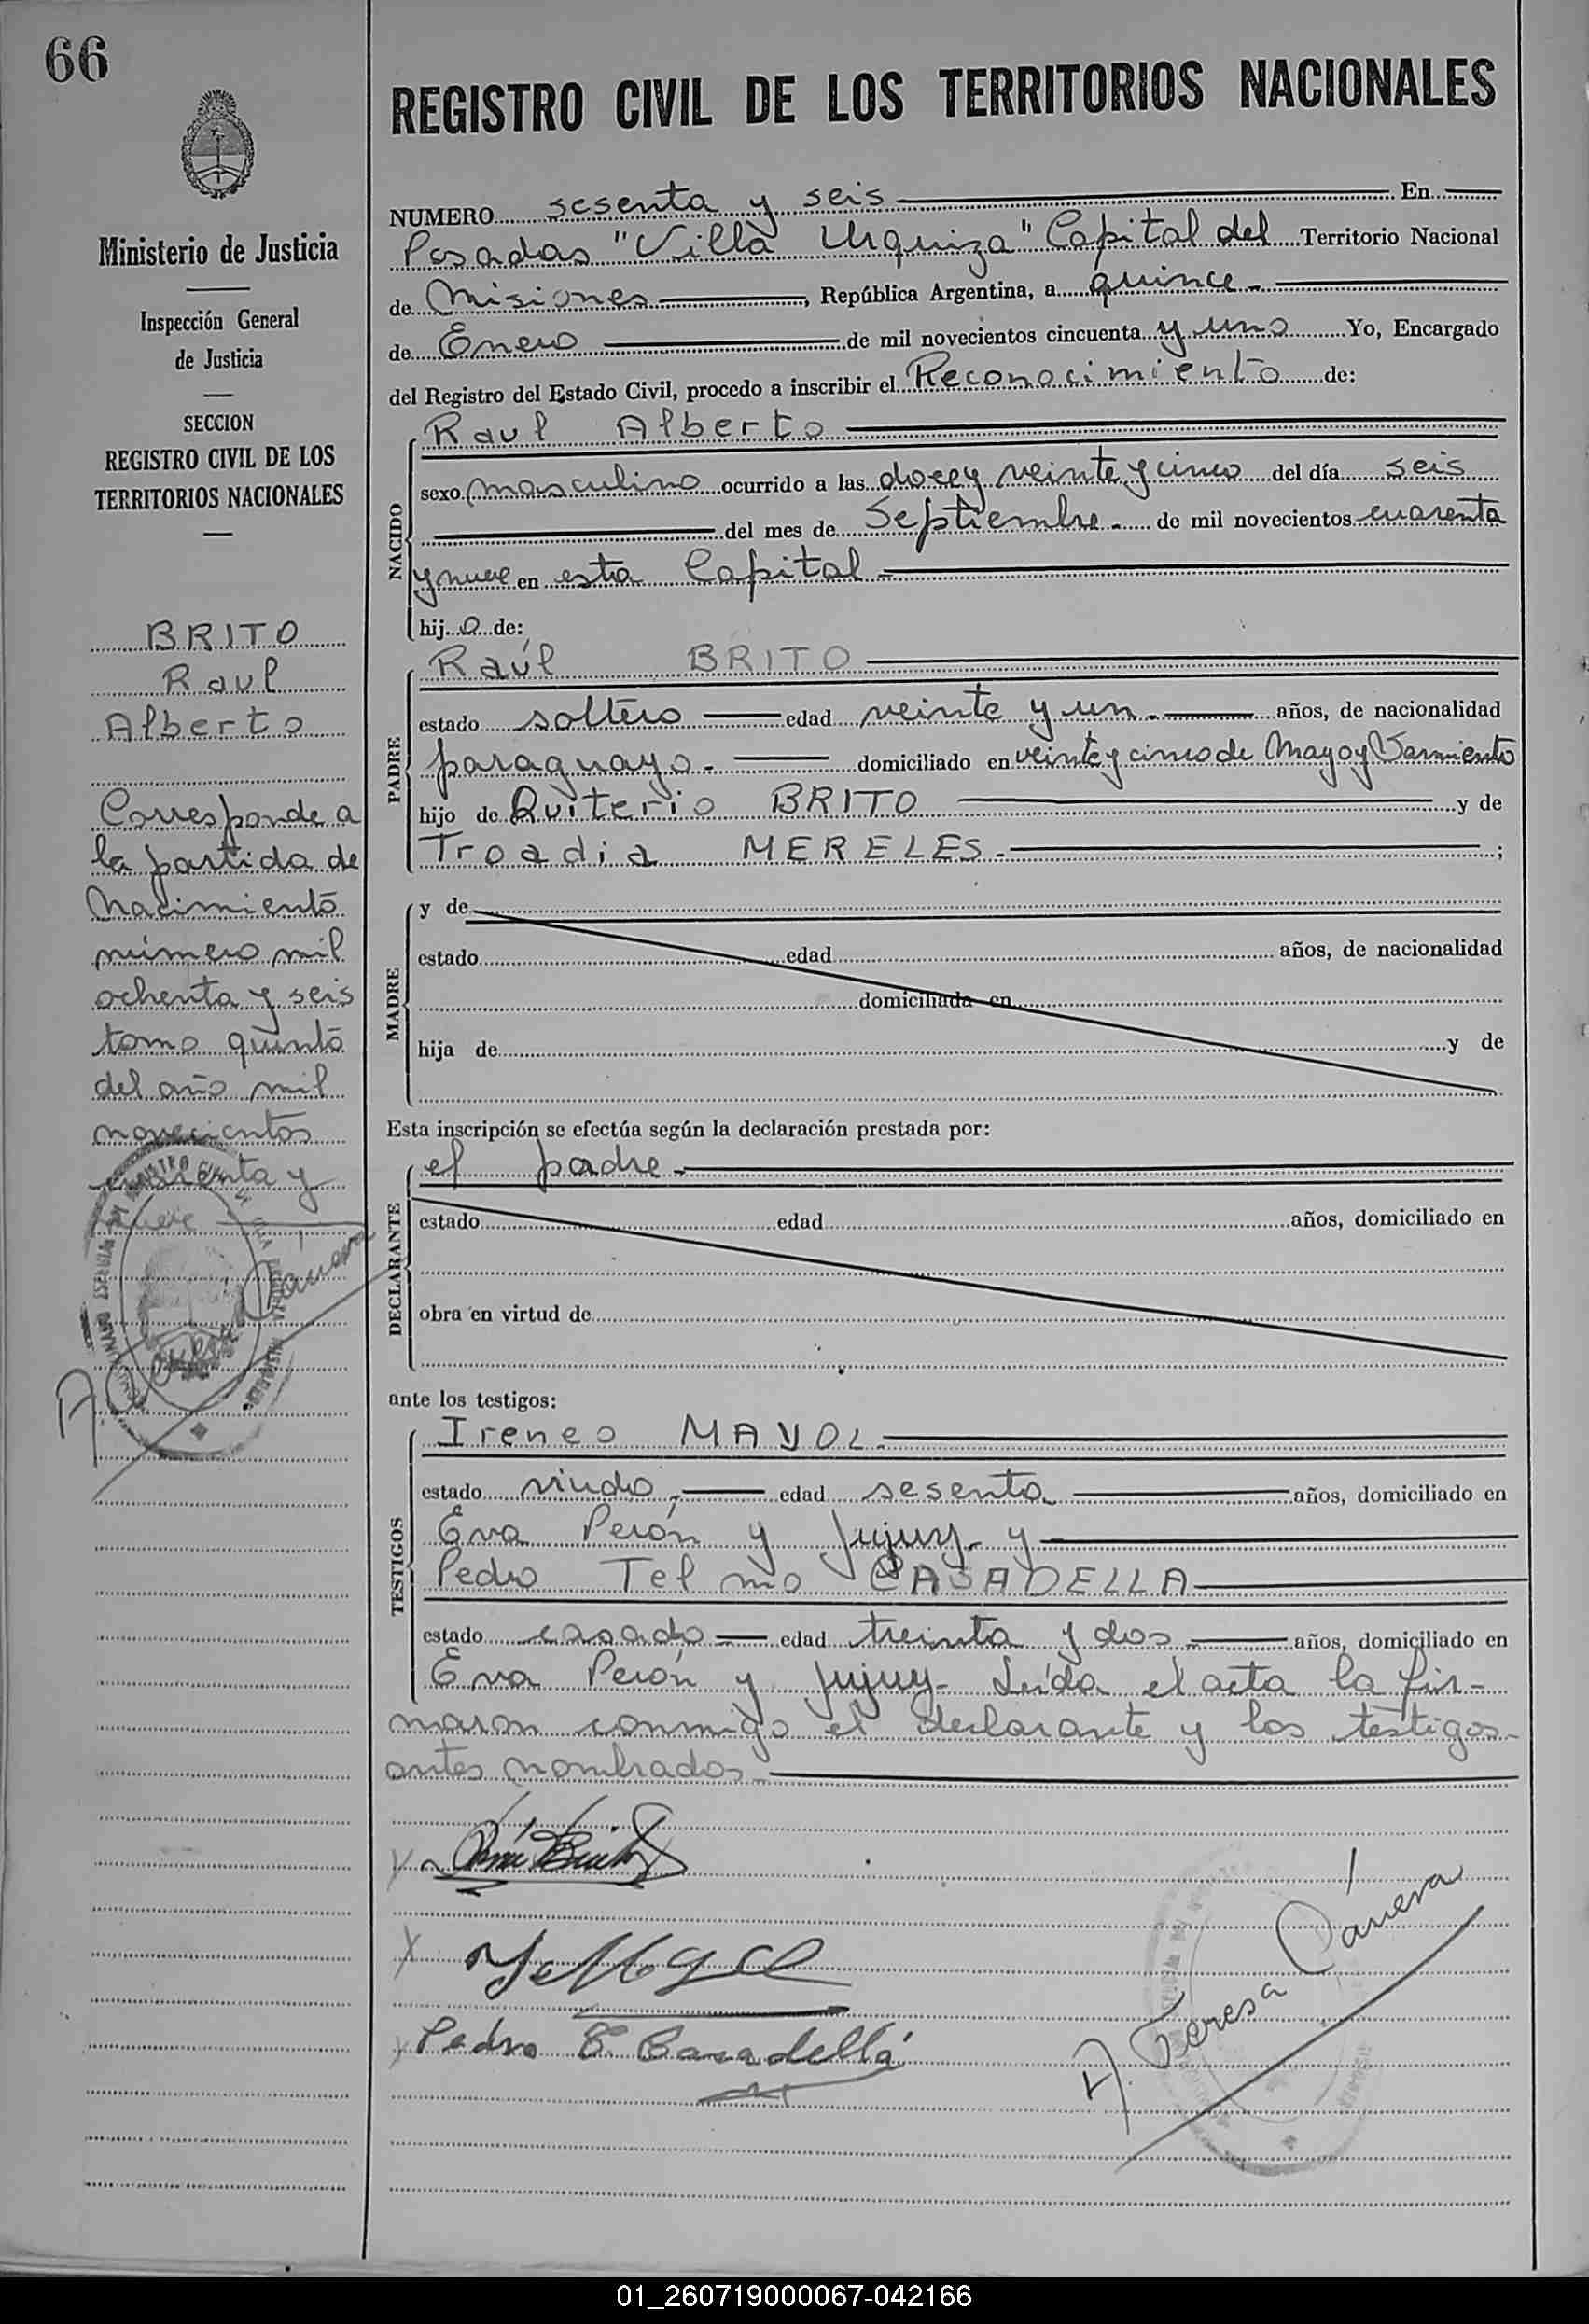 66
Ministerio de Justicia
Inspección General
de Justicia
SECCION
REGISTRO CIVIL DE LOS
TERRITORIOS NACIONALES
BRITO
Raul
Alberto
Corresponde a
la partida de
Nacimiento
número mil
ochenta y seis
tomo quinto
del año mil
novecientos
cuarenta y
nueve
REGISTRO CIVIL DE LOS TERRITORIOS NACIONALES
NUMERO sesenta y seis En
Posadas "Villa Urquiza" Capital del Territorio Nacional
de Misiones, República Argentina, a quince
de Enero de mil novecientos cincuenta y uno Yo, Encargado
del Registro del Estado Civil, procedo a inscribir el Reconocimiento de:
NACIDO
Raul Alberto
sexo masculino ocurrido a las doce y veinte y cinco del día seis
del mes de Septiembre de mil novecientos cuarenta
y nueve en esta Capital
hijo de:
PADRE
Raúl BRITO
estado soltero edad veinte y un años, de nacionalidad
paraguayo domiciliado en veinte y cinco de Mayo y Sarmiento
hijo de Quiterio BRITO y de
Troadia MERELES ;
MADRE
y de
estado edad años, de nacionalidad
domiciliada en
hija de y de
Esta inscripción se efectúa según la declaración prestada por:
DECLARANTE
el padre
estado edad años, domiciliado en
obra en virtud de
ante los testigos:
TESTIGOS
Ireneo MAYOL
estado viudo, edad sesenta años, domiciliado en
Eva Perón y Jujuy y
Pedro Telmo CASADELLA
estado casado edad treinta y dos años, domiciliado en
Eva Perón y Jujuy- Leída el acta la fir-
maron conmigo el declarante y los testigos
antes nombrados
Pedro T. Casadella
A. Teresa
01_260719000067-042166